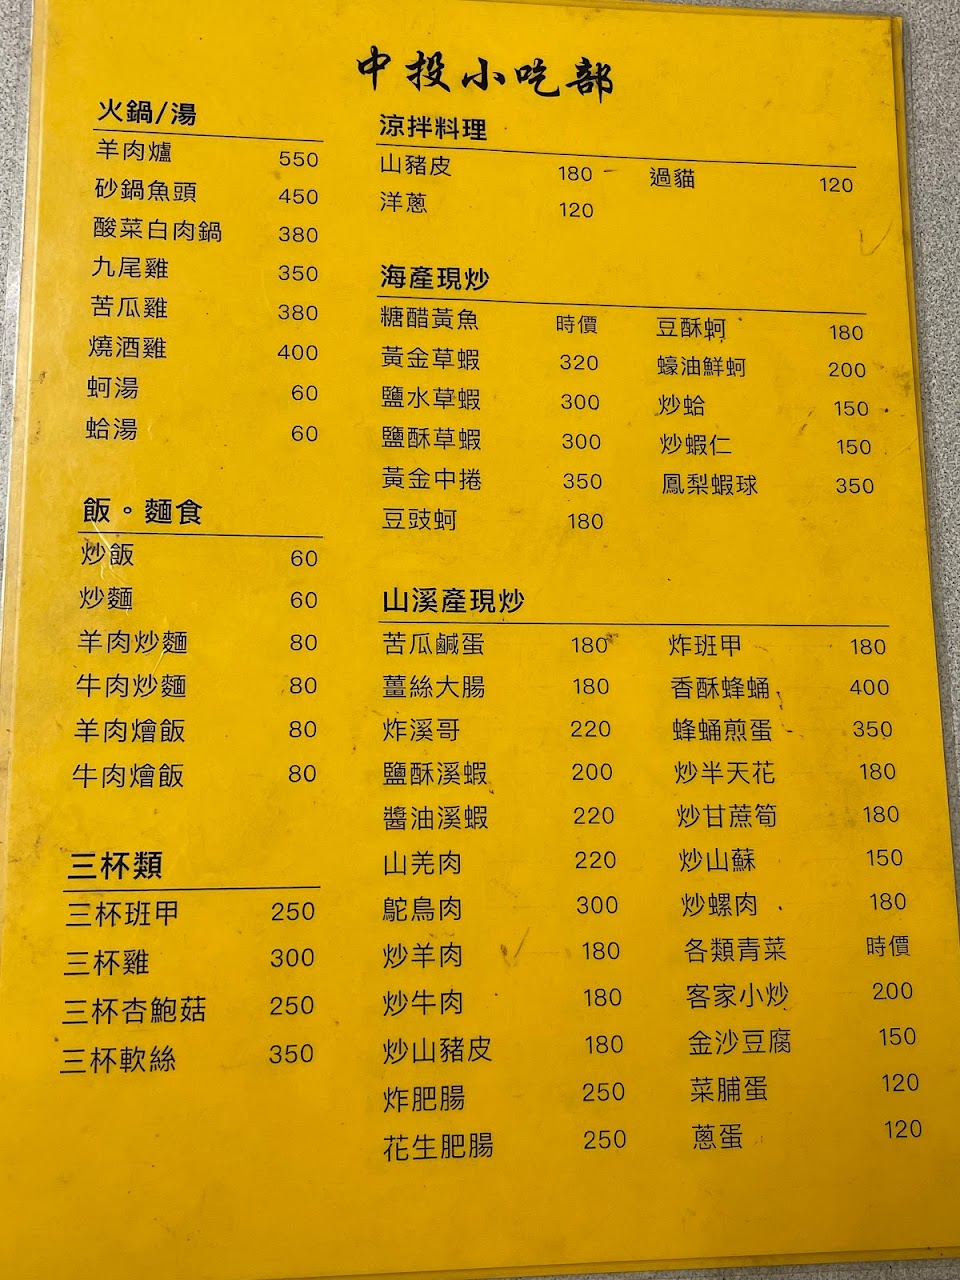 中投小吃部
火鍋/湯
羊肉爐 550
砂鍋魚頭 450
酸菜白肉鍋 380
九尾雞 350
苦瓜雞 380
燒酒雞 400
蚵湯 60
蛤湯 60
飯。麵食
炒飯 60
炒麵 60
羊肉炒麵 80
牛肉炒麵 80
羊肉燴飯 80
牛肉燴飯 80
三杯類
三杯班甲 250
三杯雞 300
三杯杏鮑菇 250
三杯軟絲 350
涼拌料理
山豬皮 180 過貓 120
洋蔥 120
海產現炒
糖醋黃魚 時價 豆酥蚵 180
黃金草蝦 320 蠔油鮮蚵 200
鹽水草蝦 300 炒蛤 150
鹽酥草蝦 300 炒蝦仁 150
黃金中捲 350 鳳梨蝦球 350
豆豉蚵 180
山溪產現炒
苦瓜鹹蛋 180 炸班甲 180
薑絲大腸 180 香酥蜂蛹 400
炸溪哥 220 蜂蛹煎蛋 350
鹽酥溪蝦 200 炒半天花 180
醬油溪蝦 220 炒甘蔗筍 180
山羌肉 220 炒山蘇 150
鴕鳥肉 300 炒螺肉 180
炒羊肉 180 各類青菜 時價
炒牛肉 180 客家小炒 200
炒山豬皮 180 金沙豆腐 150
炸肥腸 250 菜脯蛋 120
花生肥腸 250 蔥蛋 120